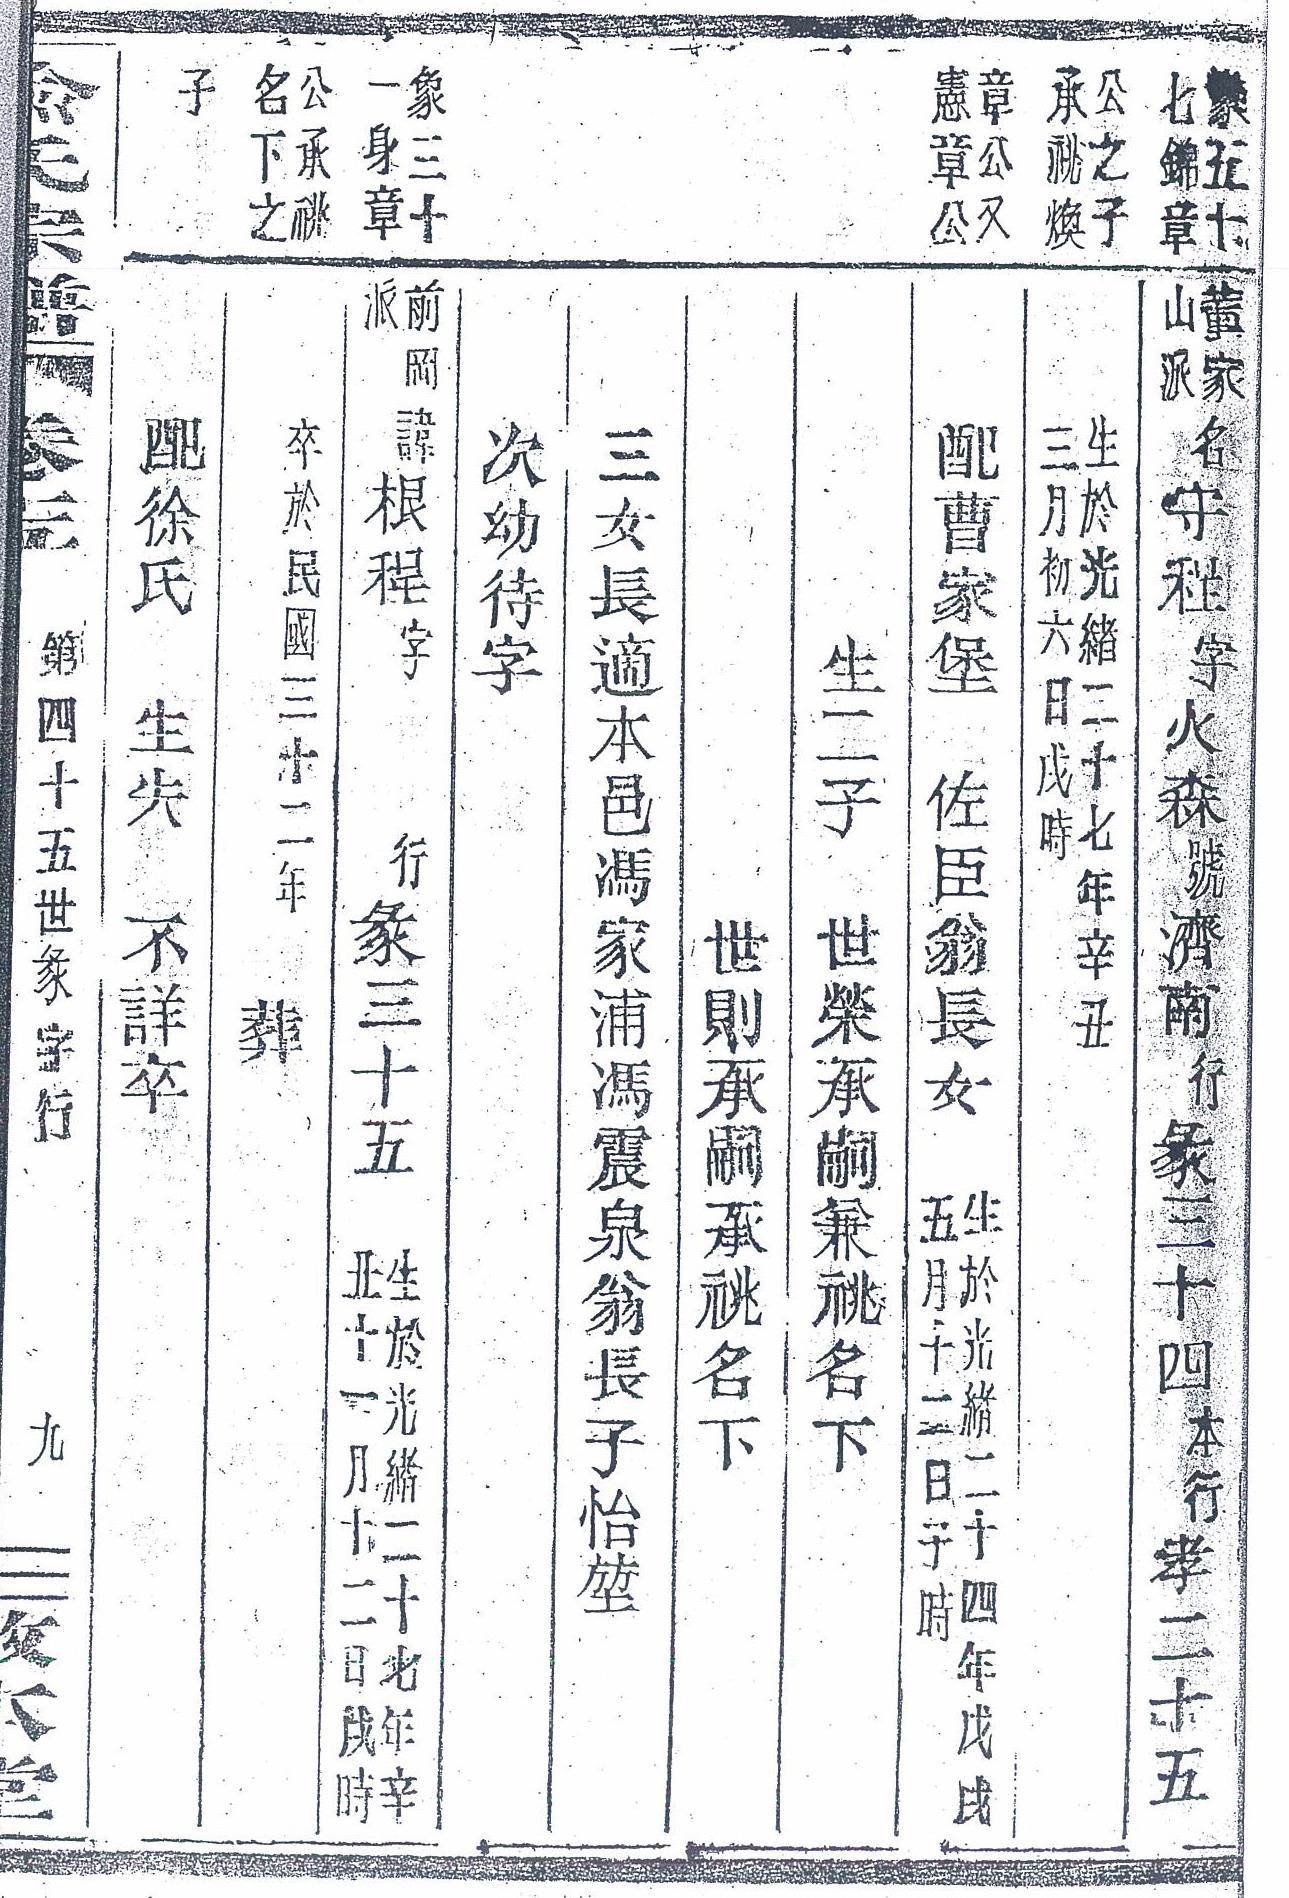 象五十
七錦章
公之子
承祧煥
章公又
憲章公
董家
山派
名守程字火森號濟南行彖三十四本行孝二十五
生於光緒二十七年辛丑
三月初六日戌時
配曹家堡 佐臣翁長女
生於光緒二十四年戊戌
五月十二日子時
生二子 世榮承嗣兼祧名下
世則承嗣承祧名下
三女長適本邑馮家浦馮震泉翁長子怡堃
次幼待字
象三十
一身章
公承祧
名下之
子
前岡
派
諱根程字 行彖三十五
生於光緒二十七年辛
丑十一月十二日戌時
卒於民國三十二年 葬
配徐氏 生失 不詳卒
俞氏宗譜 卷三 第四十五世彖字行 九